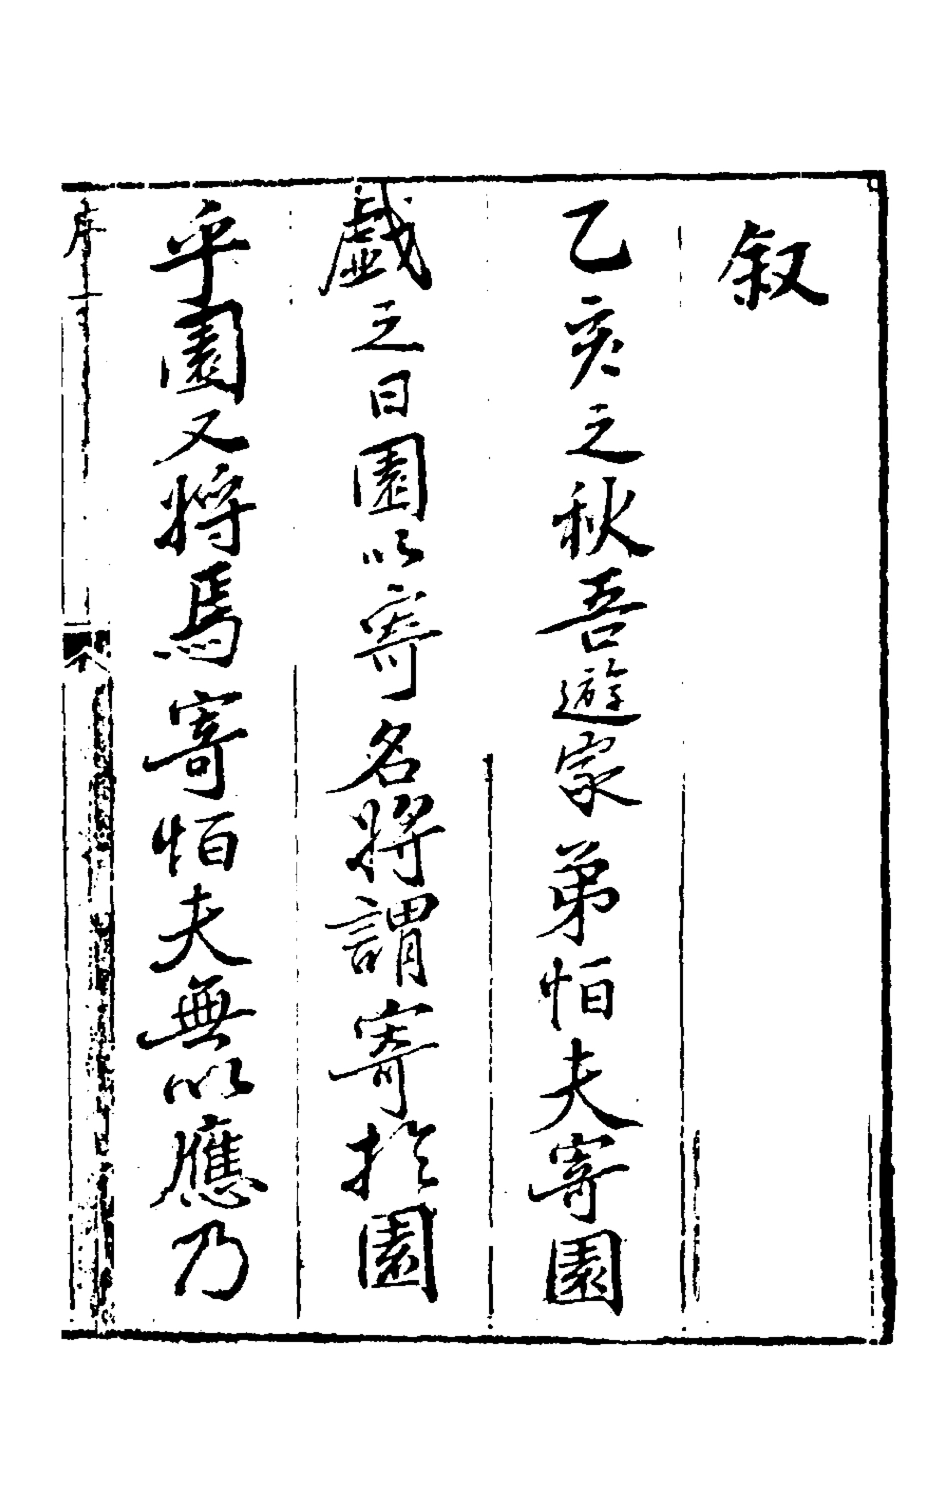 叙
乙亥之秋吾遊家弟怕夫寄園
戱之曰園以寄名將謂寄於園
乎園又將焉寄怕夫無以應乃
序 一